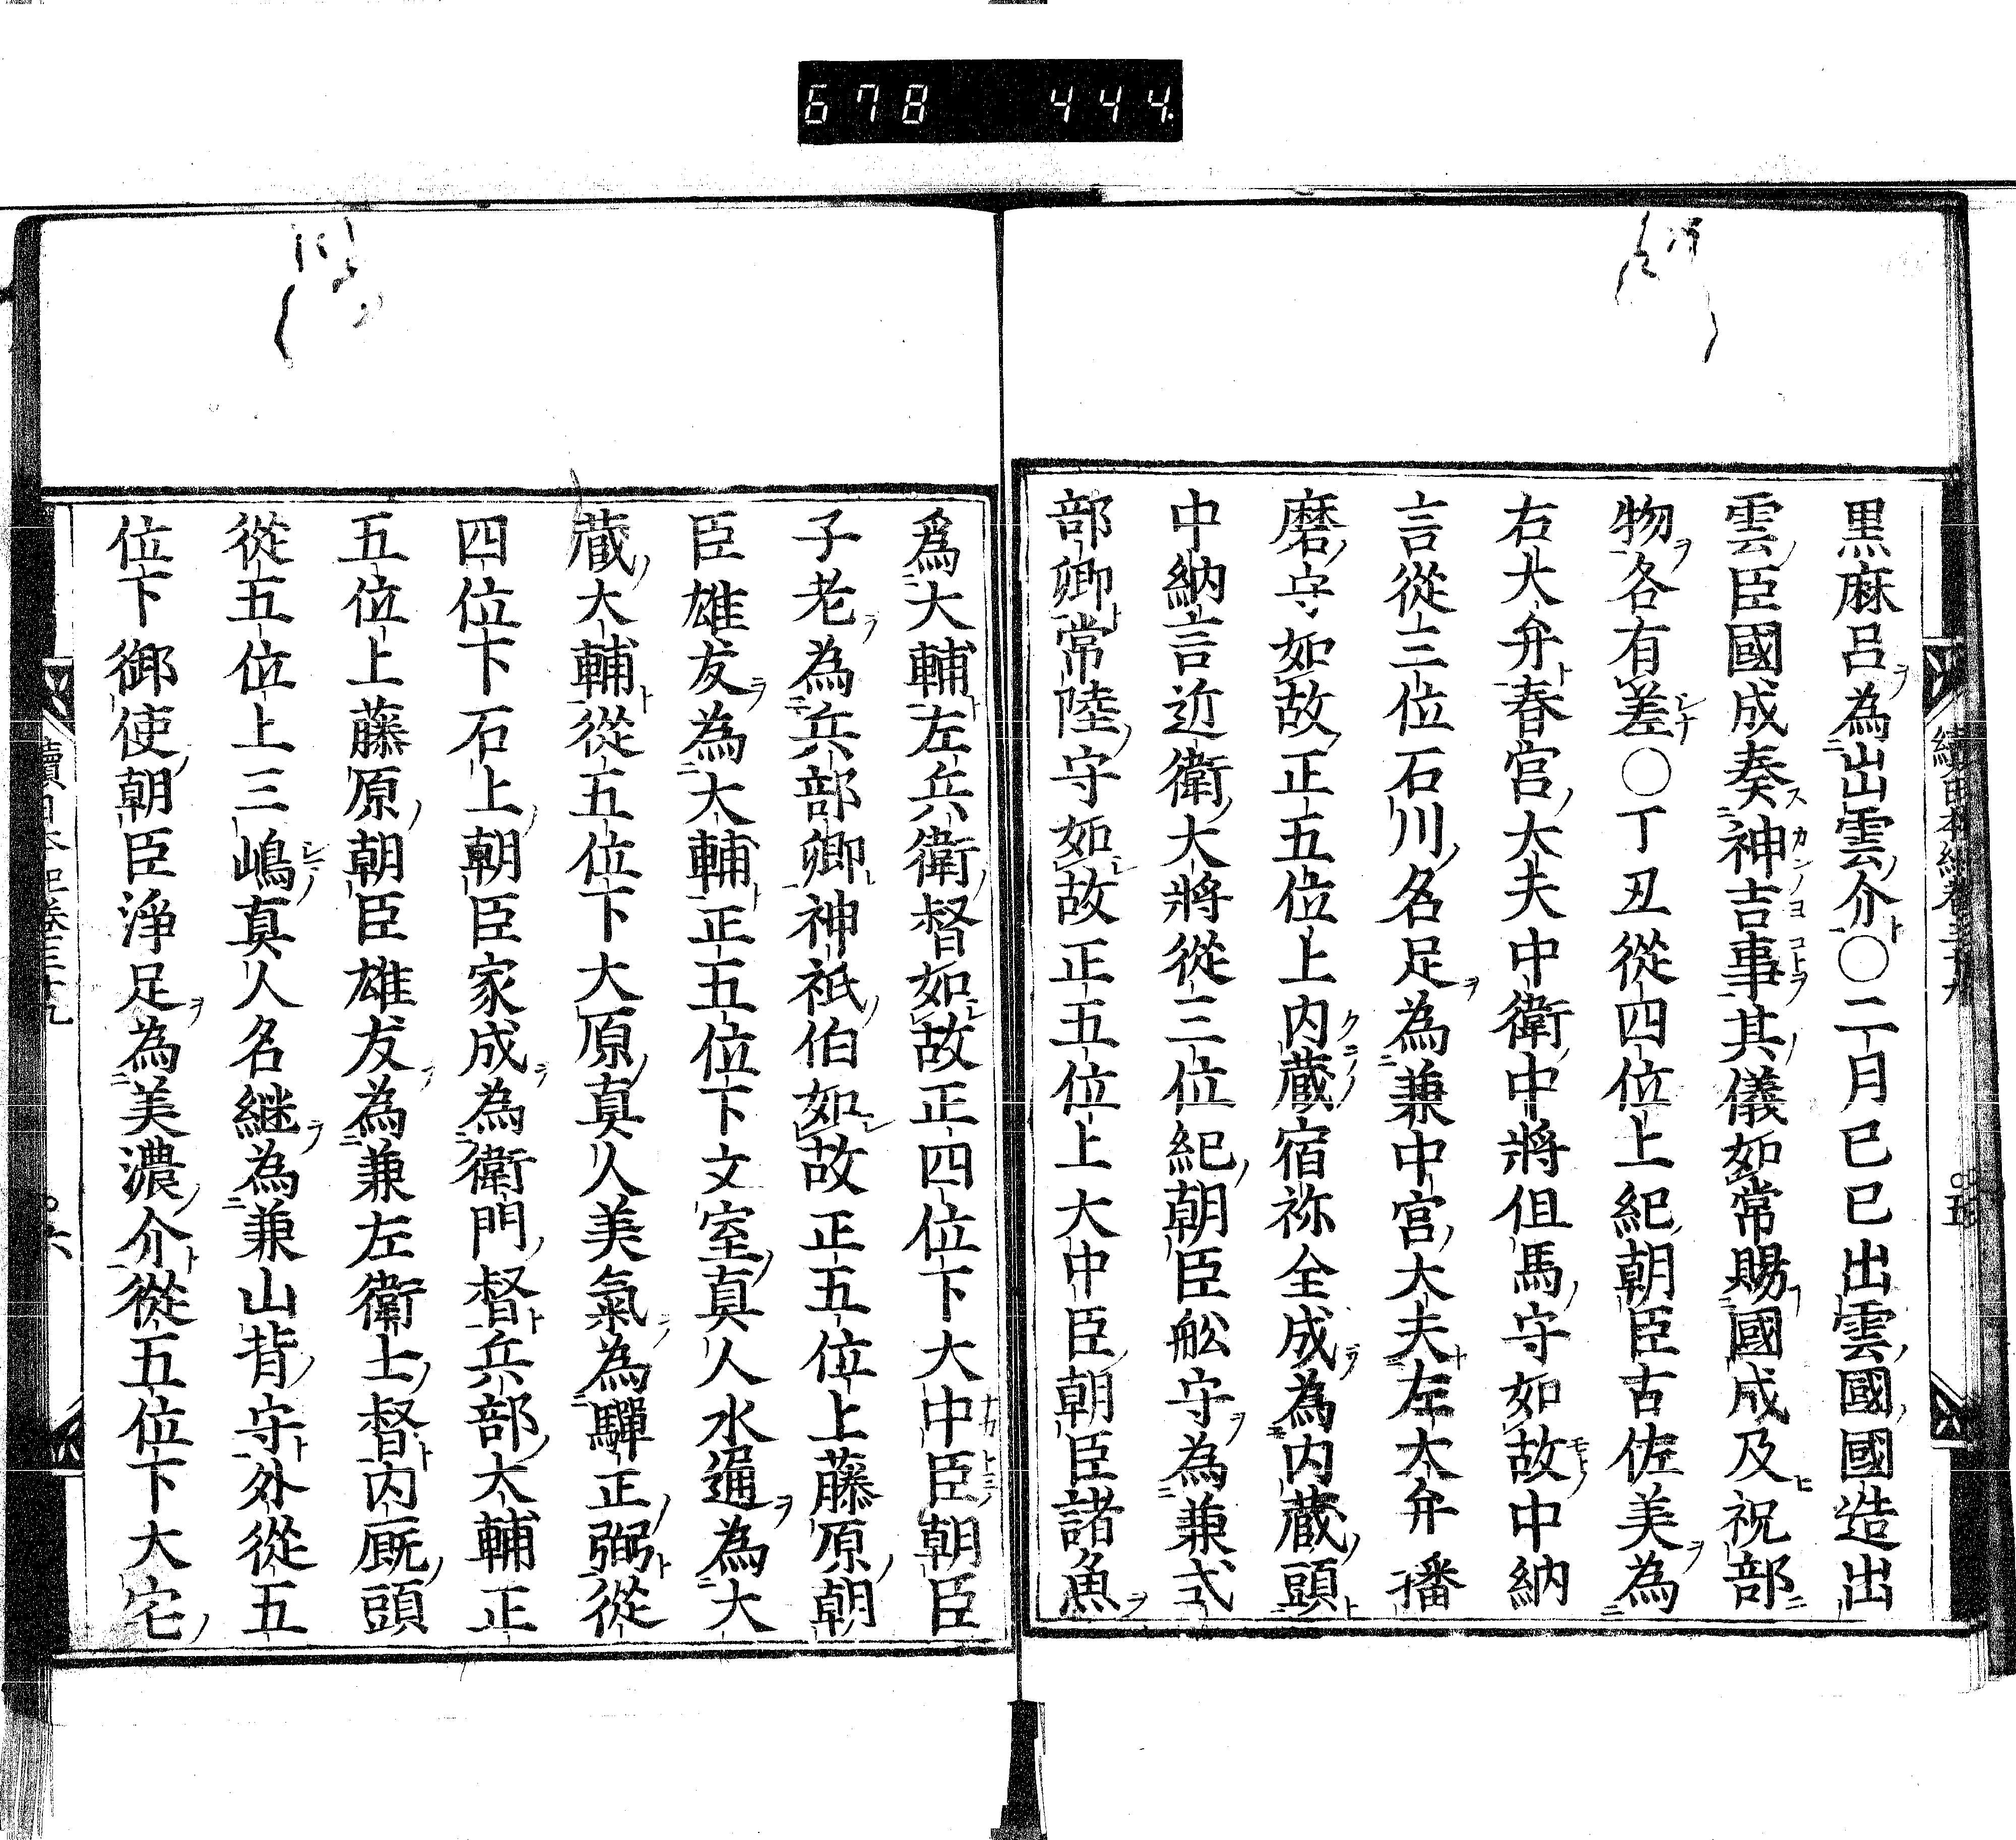 678 444
續日本紀卷三十九 五
黒麻呂為出雲介〇二月已巳出雲國國造出
雲臣國成奏神吉事其儀如常賜國成及祝部
物各有差〇丁丑從四位上紀朝臣古佐美為
右大弁春宮大夫中衛中將但馬守如故中納
言從三位石川名足為兼中宮大夫左大弁播
磨守如故正五位上内蔵宿祢全成為内蔵頭
中納言近衛大將從三位紀朝臣舩守為兼式
部卿常陸守如故正五位上大中臣朝臣諸魚
爲大輔左兵衛督如故正四位下大中臣朝臣
子老為兵部卿神祇伯如故正五位上藤原朝
臣雄友為大輔正五位下文室真人水通為大
蔵大輔從五位下大原真人美氣為驒正弼從
四位下石上朝臣家成為衛門督兵部大輔正
五位上藤原朝臣雄友為兼左衛士督内厩頭
從五位上三嶋真人名継為兼山背守外從五
位下御使朝臣淨足為美濃介從五位下大宅
續日本紀卷三十九 六